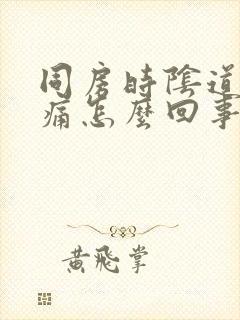 同房時陰道
痛怎麼回事
黃飛掌